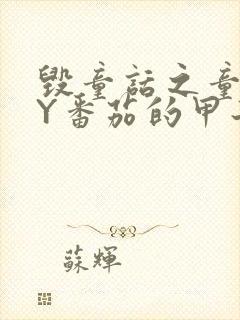 毁童话之童
Y番茄的甲
蘇輝